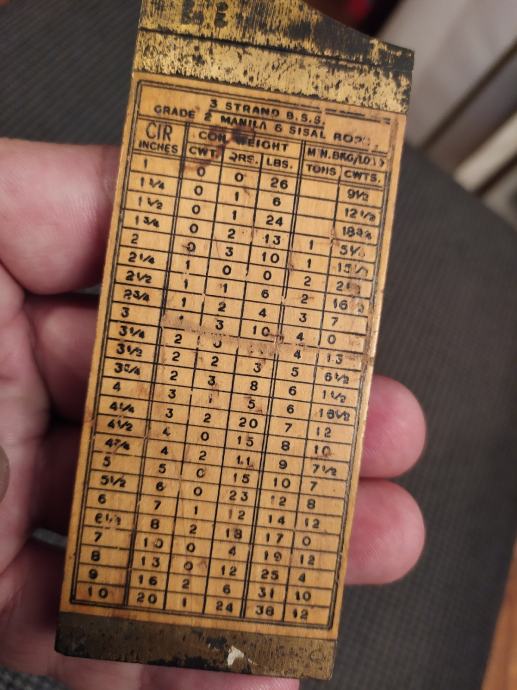 3 STRAND B.S.S.
GRADE 2 MANILA & SISAL ROPE
CIR INCHES COIL WEIGHT MIN.BKG/LOAD
CWT. QRS. LBS. TONS CWTS.
1 0 0 26 9½
1¼ 0 1 6 12½
1½ 0 1 24
1¾ 0 2 13 1
2 0 3 10 1
2¼ 1 0 0 2
2½ 1 1 6 2 16
2¾ 1 2 4 3 7
3 3 10 4 0
3¼ 2 4 13
3½ 2 2 3 5 6½
3¾ 2 3 8 6 1½
4 3 5 6 18½
4¼ 3 2 20 7 12
4½ 4 0 15 8 10
4¾ 4 2 11 9 7½
5 5 0 15 10 7
5½ 6 0 23 12 8
6 7 1 12 14 12
6½ 8 2 18 17 0
7 10 0 4 19 12
8 13 0 12 25 4
9 16 2 6 31 10
10 20 1 24 38 12